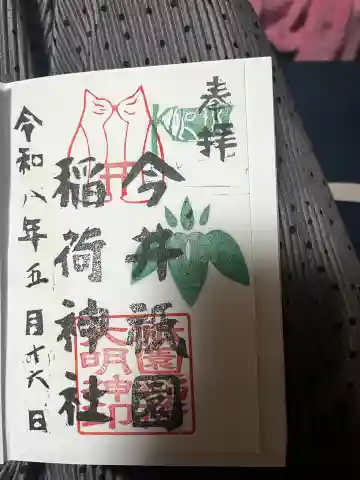 奉拝
今井祇園
稲荷神社
令和八年五月十六日